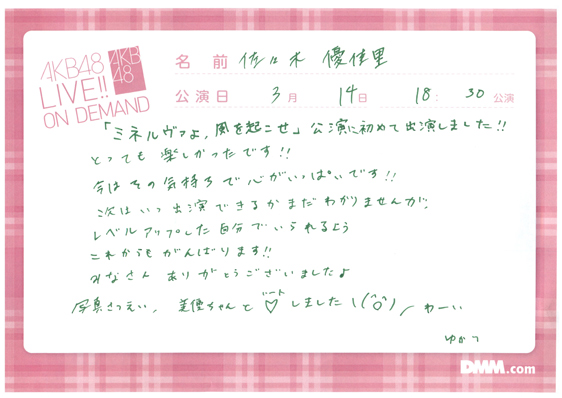 AKB48
LIVE!!
ON DEMAND
AKB
48
名前 佐々木 優佳里
公演日 3月 14日 18:30公演
「ミネルヴァよ、風を起こせ」公演に初めて出演しました!!
とっても楽しかったです!!
今はその気持ちで心がいっぱいです!!
次はいつ出演できるかまだわかりませんが、
レベルアップした自分でいられるよう
これからもがんばります!!
みなさん ありがとうございましたよ
写真さつえい、美優ちゃんと ハート ♡ しました \(^o^)/ わーい
ゆかつ
DMM.com